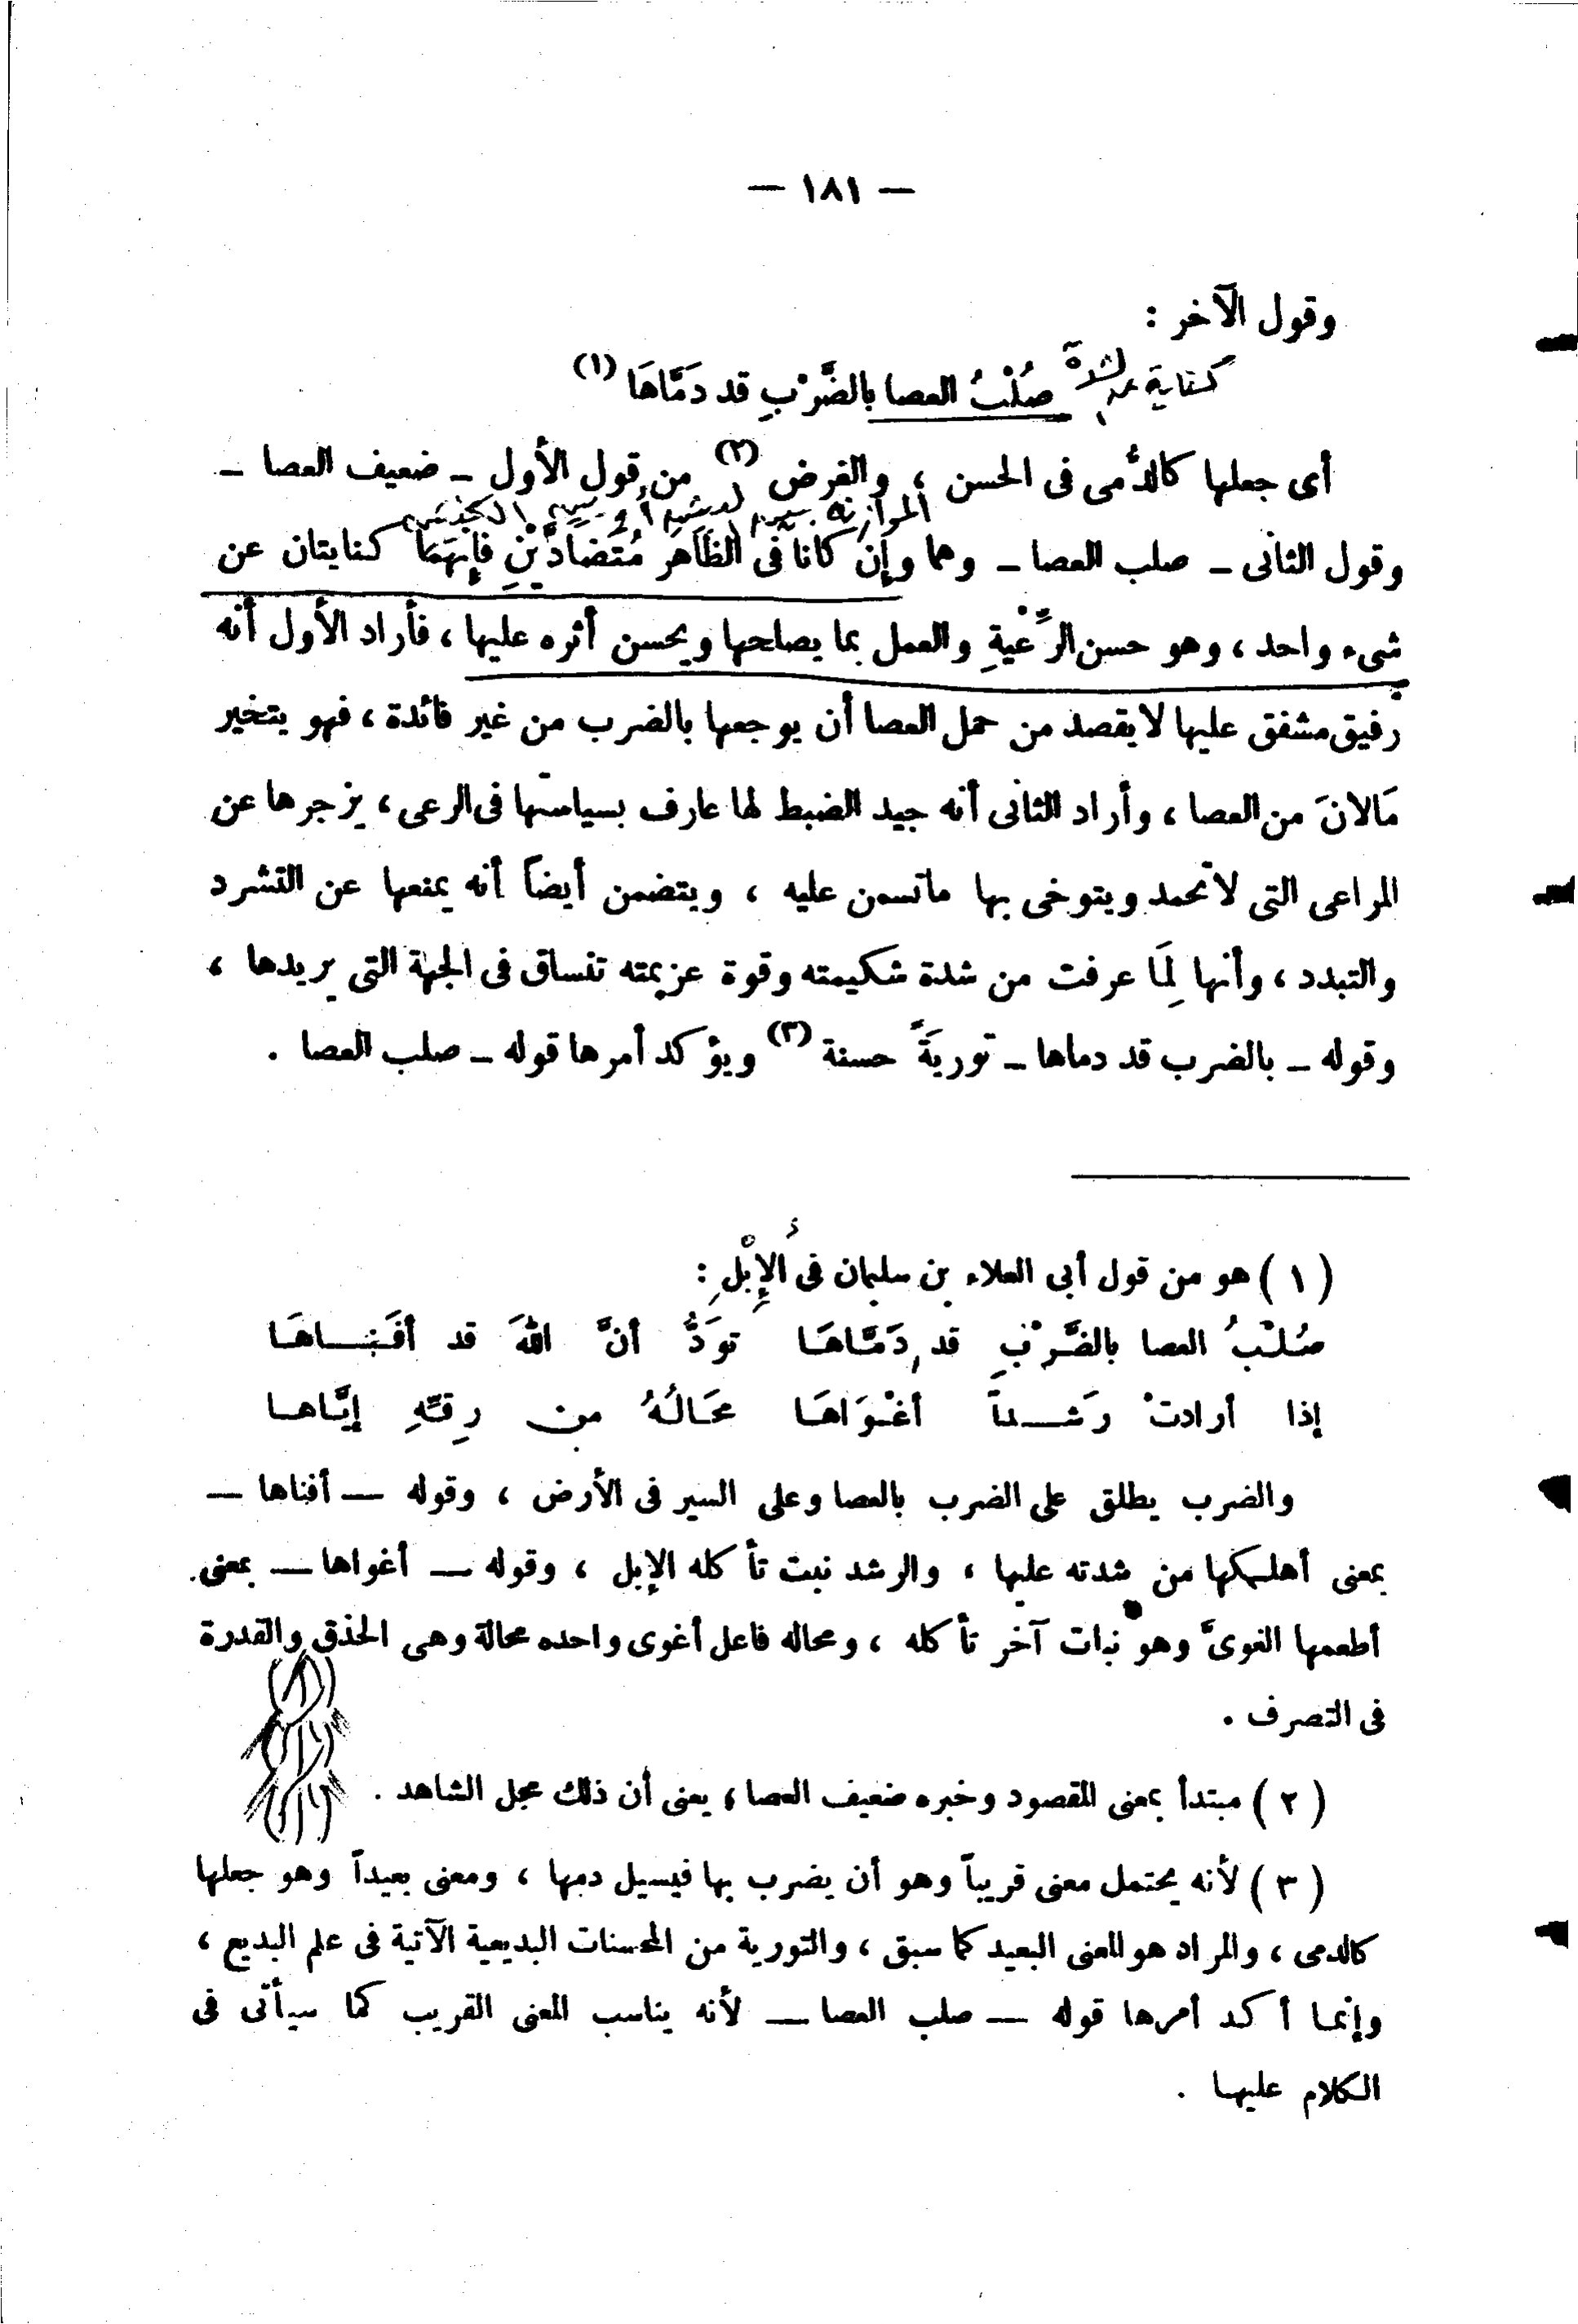 — ١٨١ —
وقول الآخر :
كناية عن شدة
صُلْبُ العصا بالضَّرْبِ قد دَمَّاهَا (١)
أى جعلها كالدُّمى فى الحسن ، والغرض (٢) من قول الأول – ضعيف العصا –
الموازنة
وقول الثانى – صلب العصا – وهما وإن كانا فى الظاهر مُتَضَادَّيْنِ فإنهما كنايتان عن
شىء واحد ، وهو حسن الرِّعْيةِ والعمل بما يصلحها ويحسن أثره عليها ، فأراد الأول أنه
رفيق مشفق عليها لا يقصد من حمل العصا أن يوجعها بالضرب من غير فائدة ، فهو يتخير
مَالانَ من العصا ، وأراد الثانى أنه جيد الضبط لها عارف بسياستها فى الرعى ، يزجرها عن
المراعى التى لا تحمد ويتوخى بها ما تسمن عليه ، ويتضمن أيضاً أنه يمنعها عن التشرد
والتبدد ، وأنها لِمَا عرفت من شدة شكيمته وقوة عزيمته تنساق فى الجهة التى يريدها ،
وقوله – بالضرب قد دماها – توريَةً حسنة (٣) ويؤكد أمرها قوله – صلب العصا .
( ١ ) هو من قول أبى العلاء بن سليمان فى الإِبْلِ :
صُلْبُ العصا بالضَّرْبِ قد دَمَّاهَا تودُّ أنَّ اللهَ قد أفْنَاهَا
إذا أرادتْ رَشداً أغْوَاهَا مَحَالُهُ من رِقَّهِ إيَّاها
والضرب يطلق على الضرب بالعصا وعلى السير فى الأرض ، وقوله — أفناها —
بمعنى أهلكها من شدته عليها ، والرشد نبت تأكله الإبل ، وقوله — أغواها — بمعنى
أطعمها الغوىَّ وهو نبات آخر تأكله ، ومحاله فاعل أغوى واحده محالة وهى الحذق والقدرة
فى التصرف .
( ٢ ) مبتدأ بمعنى المقصود وخبره ضعيف العصا ، يعنى أن ذلك محل الشاهد .
( ٣ ) لأنه يحتمل معنى قريباً وهو أن يضرب بها فيسيل دمها ، ومعنى بعيداً وهو جعلها
كالدمى ، والمراد هو المعنى البعيد كما سبق ، والتورية من المحسنات البديعية الآتية فى علم البديع ،
وإنما أكد أمرها قوله — صلب العصا — لأنه يناسب المعنى القريب كما سيأتى فى
الكلام عليها .